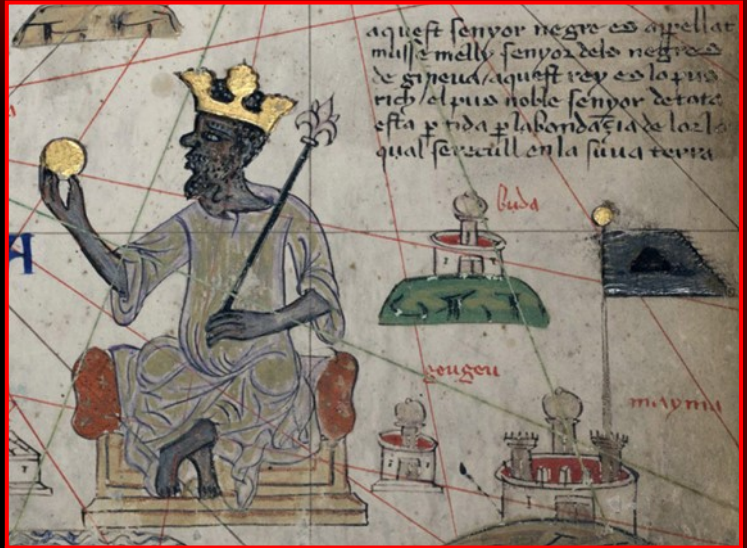 aquest senyor negre es appellat
musse melly senyor dels negres
de gineua / aquest rey es lo pus
rich / el pus noble senyor de tota
esta ꝑtida ꝑ labondaçia de lor lo
qual se recull en la suua terra
buda
geugeu
mayma